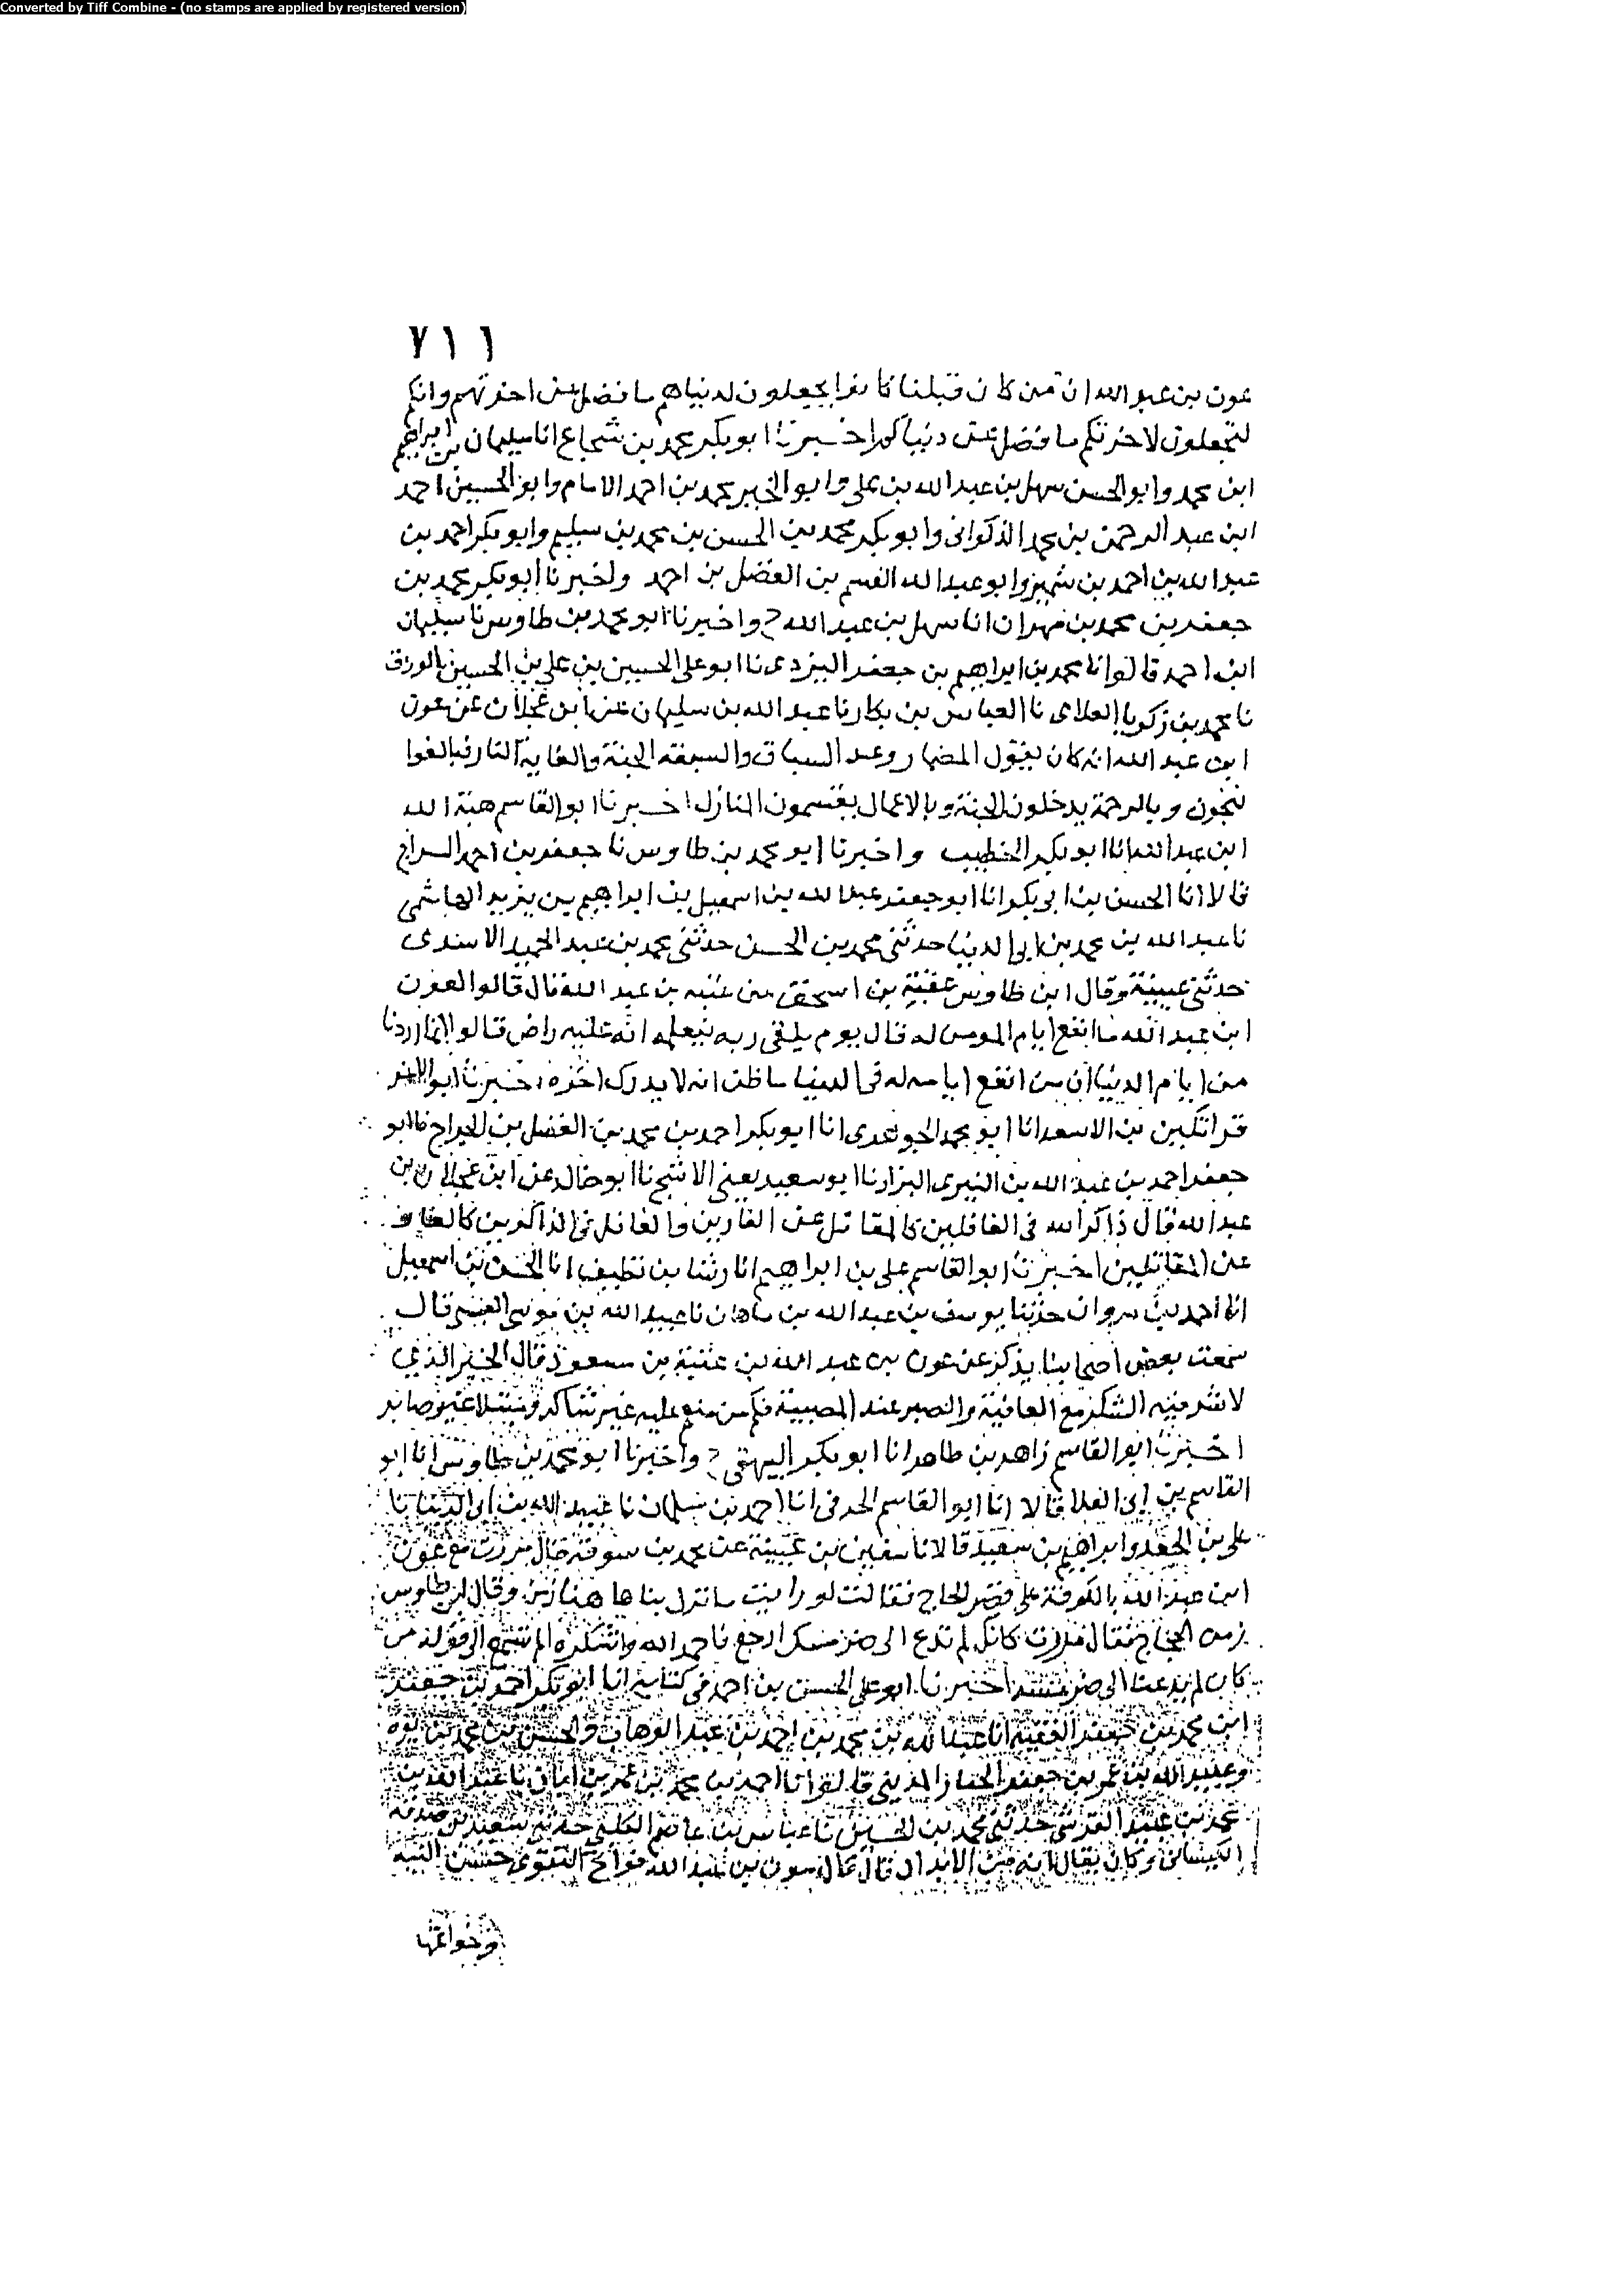 Converted by Tiff Combine - (no stamps are applied by registered version)
٧١١
عون بن عبد الله ان من كان قبلنا كانوا يجعلون لدنياهم ما فضل عن اخرتهم وانكم
لتجعلون لاخرتكم ما فضل عن دنياكم اخبرنا ابو بكر محمد بن شجاع انا سليمان بن ابراهيم
ابن محمد وابو الحسن سهل بن عبد الله بن على وابو الخير محمد بن احمد الامام وابو الحسين احمد
ابن عبد الرحمن بن محمد الذكوانى وابو بكر محمد بن الحسن بن محمد بن سليم وابو بكر احمد بن
عبد الله بن احمد بن وابو عبد الله القسم بن الفضل بن احمد واخبرنا ابو بكر محمد بن
جعفر بن محمد بن مهران انا سهل بن عبد الله ح واخبرنا ابو محمد بن طاوس نا سليمان
ابن احمد قالوا نا محمد بن ابراهيم بن جعفر اليزدى نا ابو على الحسين بن على بن الحسين
نا محمد بن زكريا العلاى نا العباس بن بكار نا عبد الله بن سليمان عن ابن عجلان عن عون
ابن عبد الله انه كان يقول المضمار وغد السباق والسبقه الجنة والغاية النار فبالعفو
تنجون وبالرحمة يدخلون الجنة وبالاعمال يقتسمون المنازل اخبرنا ابو القاسم هبة الله
ابن عبد الله انا ابو بكر الخطيب واخبرنا ابو محمد بن طاوس نا جعفر بن احمد السراج
قالا انا الحسن بن ابى بكر انا ابو جعفر عبد الله بن اسمعيل بن ابراهيم بن يزيد الهاشمى
نا عبد الله بن محمد بن ابى الدنيا حدثنى محمد بن الحسن حدثنى محمد بن عبد الحميد الاسدى
حدثنى عيينة وقال ابن طاوس عقبة بن اسحق عن عتبه بن عبد الله قال قالوا لعون
ابن عبد الله ما انفع ايام المومن له قال يوم يلقى ربه فيعلمه انه عليه راض قالوا انما اردنا
من ايام الدنيا ان من انفع ايامه له فى الدنيا ما ظن انه لا يدرك اخره اخبرنا ابو الاعز
قراتكين بن الاسعد انا ابو محمد الجوهرى انا ابو بكر احمد بن محمد بن الفضل بن الجراح نا ابو
جعفر احمد بن عبد الله بن النيرى البزار نا ابو سعيد يعنى الاشج نا ابو خالد عن ابن عجلان بن
عبد الله قال ذاكر الله فى الغافلين كالمقاتل عن الفارين والغافل فى الذاكرين كالفار
عن المقاتلين اخبرنا ابو القاسم على بن ابراهيم انا رشا بن نظيف انا الحسن بن اسمعيل
انا احمد بن مروان حدثنا يوسف بن عبد الله بن ماهان نا عبيد الله بن موسى العبسى قال
سمعت بعض اصحابنا يذكر عن عون بن عبد الله بن عتبة بن مسعود قال الخير الذي
لا شر فيه الشكر مع العافية والصبر عند المصيبة فكم من منعم عليه غير شاكر ومبتلا غير صابر
اخبرنا ابو القاسم زاهر بن طاهر انا ابو بكر البيهقى ح واخبرنا ابو محمد بن طاوس انا ابو
القاسم بن ابى العلا قالا انا ابو القاسم الحرفى انا احمد بن سلمان نا عبيد الله بن ابى الدنيا نا
على بن الجعد وابراهيم بن سعيد قالا نا سفين بن عيينة عن محمد بن سوقة قال مررت مع عون
ابن عبد الله بالكوفة على قصر الحاج فقلت لو رايت ما نزل بنا ها هنا زمن وقال ابن طاوس
زمن الحجاج فقال مررت كانك لم تدع الى ضر مسك ارجع فاحمد الله واشكره الم تسمع الى قوله مر
كان لم يدعنا الى ضر مسه اخبرنا ابو على الحسن بن احمد فى كتابه انا ابو بكر احمد بن جعفر
ابن محمد بن جعفر الفقيه انا عبد الله بن محمد بن احمد بن عبد الوهاب والحسن بن محمد بن
وعبيد الله بن عمر بن جعفر الخباز المدينى قالوا انا احمد بن محمد بن عمر بن ابان نا عبد الله بن
محمد بن عبيد القرشى حدثنى محمد بن الحسين نا عباس بن عاصم الكلبى حدثنى سعيد بن صدقه
الكيسانى وكان يقال انه من الابدال قال قال عون بن عبد الله فواتح التقوى حسن النية
وخواتمها